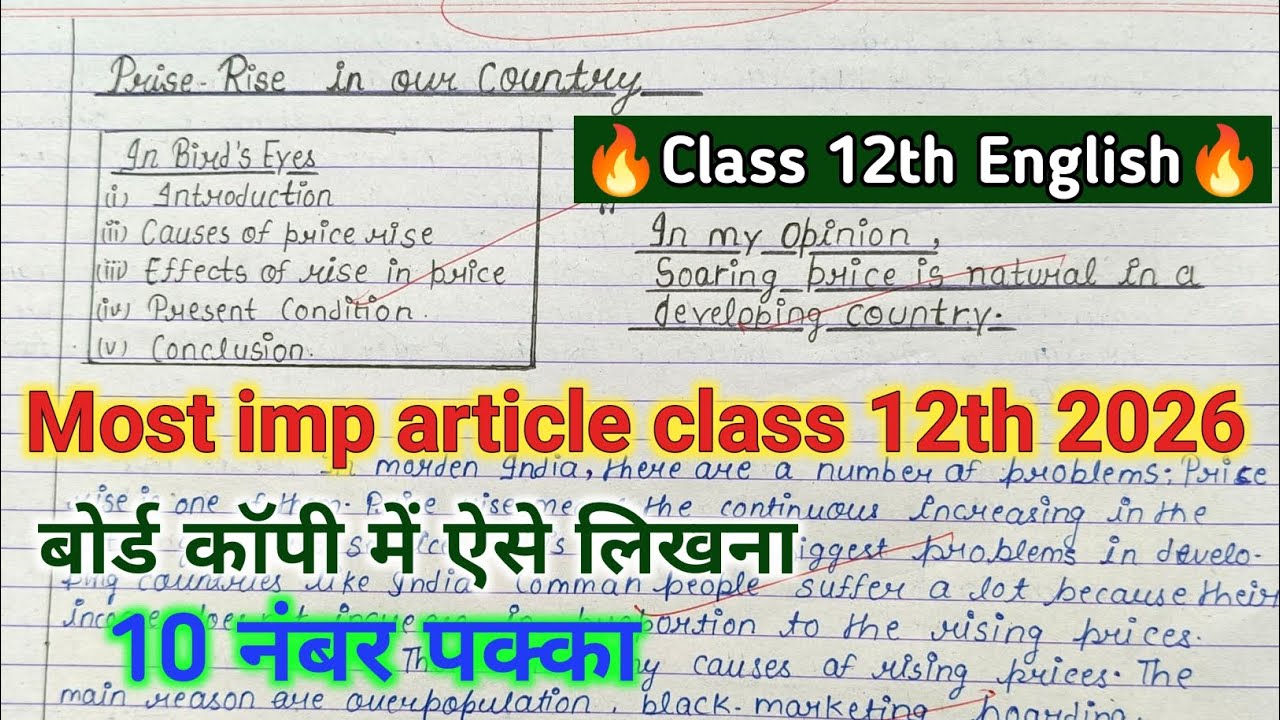 Prise-Rise in our Country
🔥Class 12th English🔥
In Bird's Eyes
(i) Introduction
(ii) Causes of price rise
(iii) Effects of rise in price
(iv) Present Condition.
(v) Conclusion.
"
In my Opinion,
Soaring price is natural in a
developing country.
Most imp article class 12th 2026
In morden India, there are a number of problems; Price
rise is one of them. Price rise the continuous increasing in the
बोर्ड कॉपी में ऐसे लिखना
biggest problems in develo-
ping countries like India Comman people suffer a lot because their
income does not in proportion to the rising prices.
10 नंबर पक्का
causes of rising prices. The
main reason are overpopulation, black-marketing hoarding,